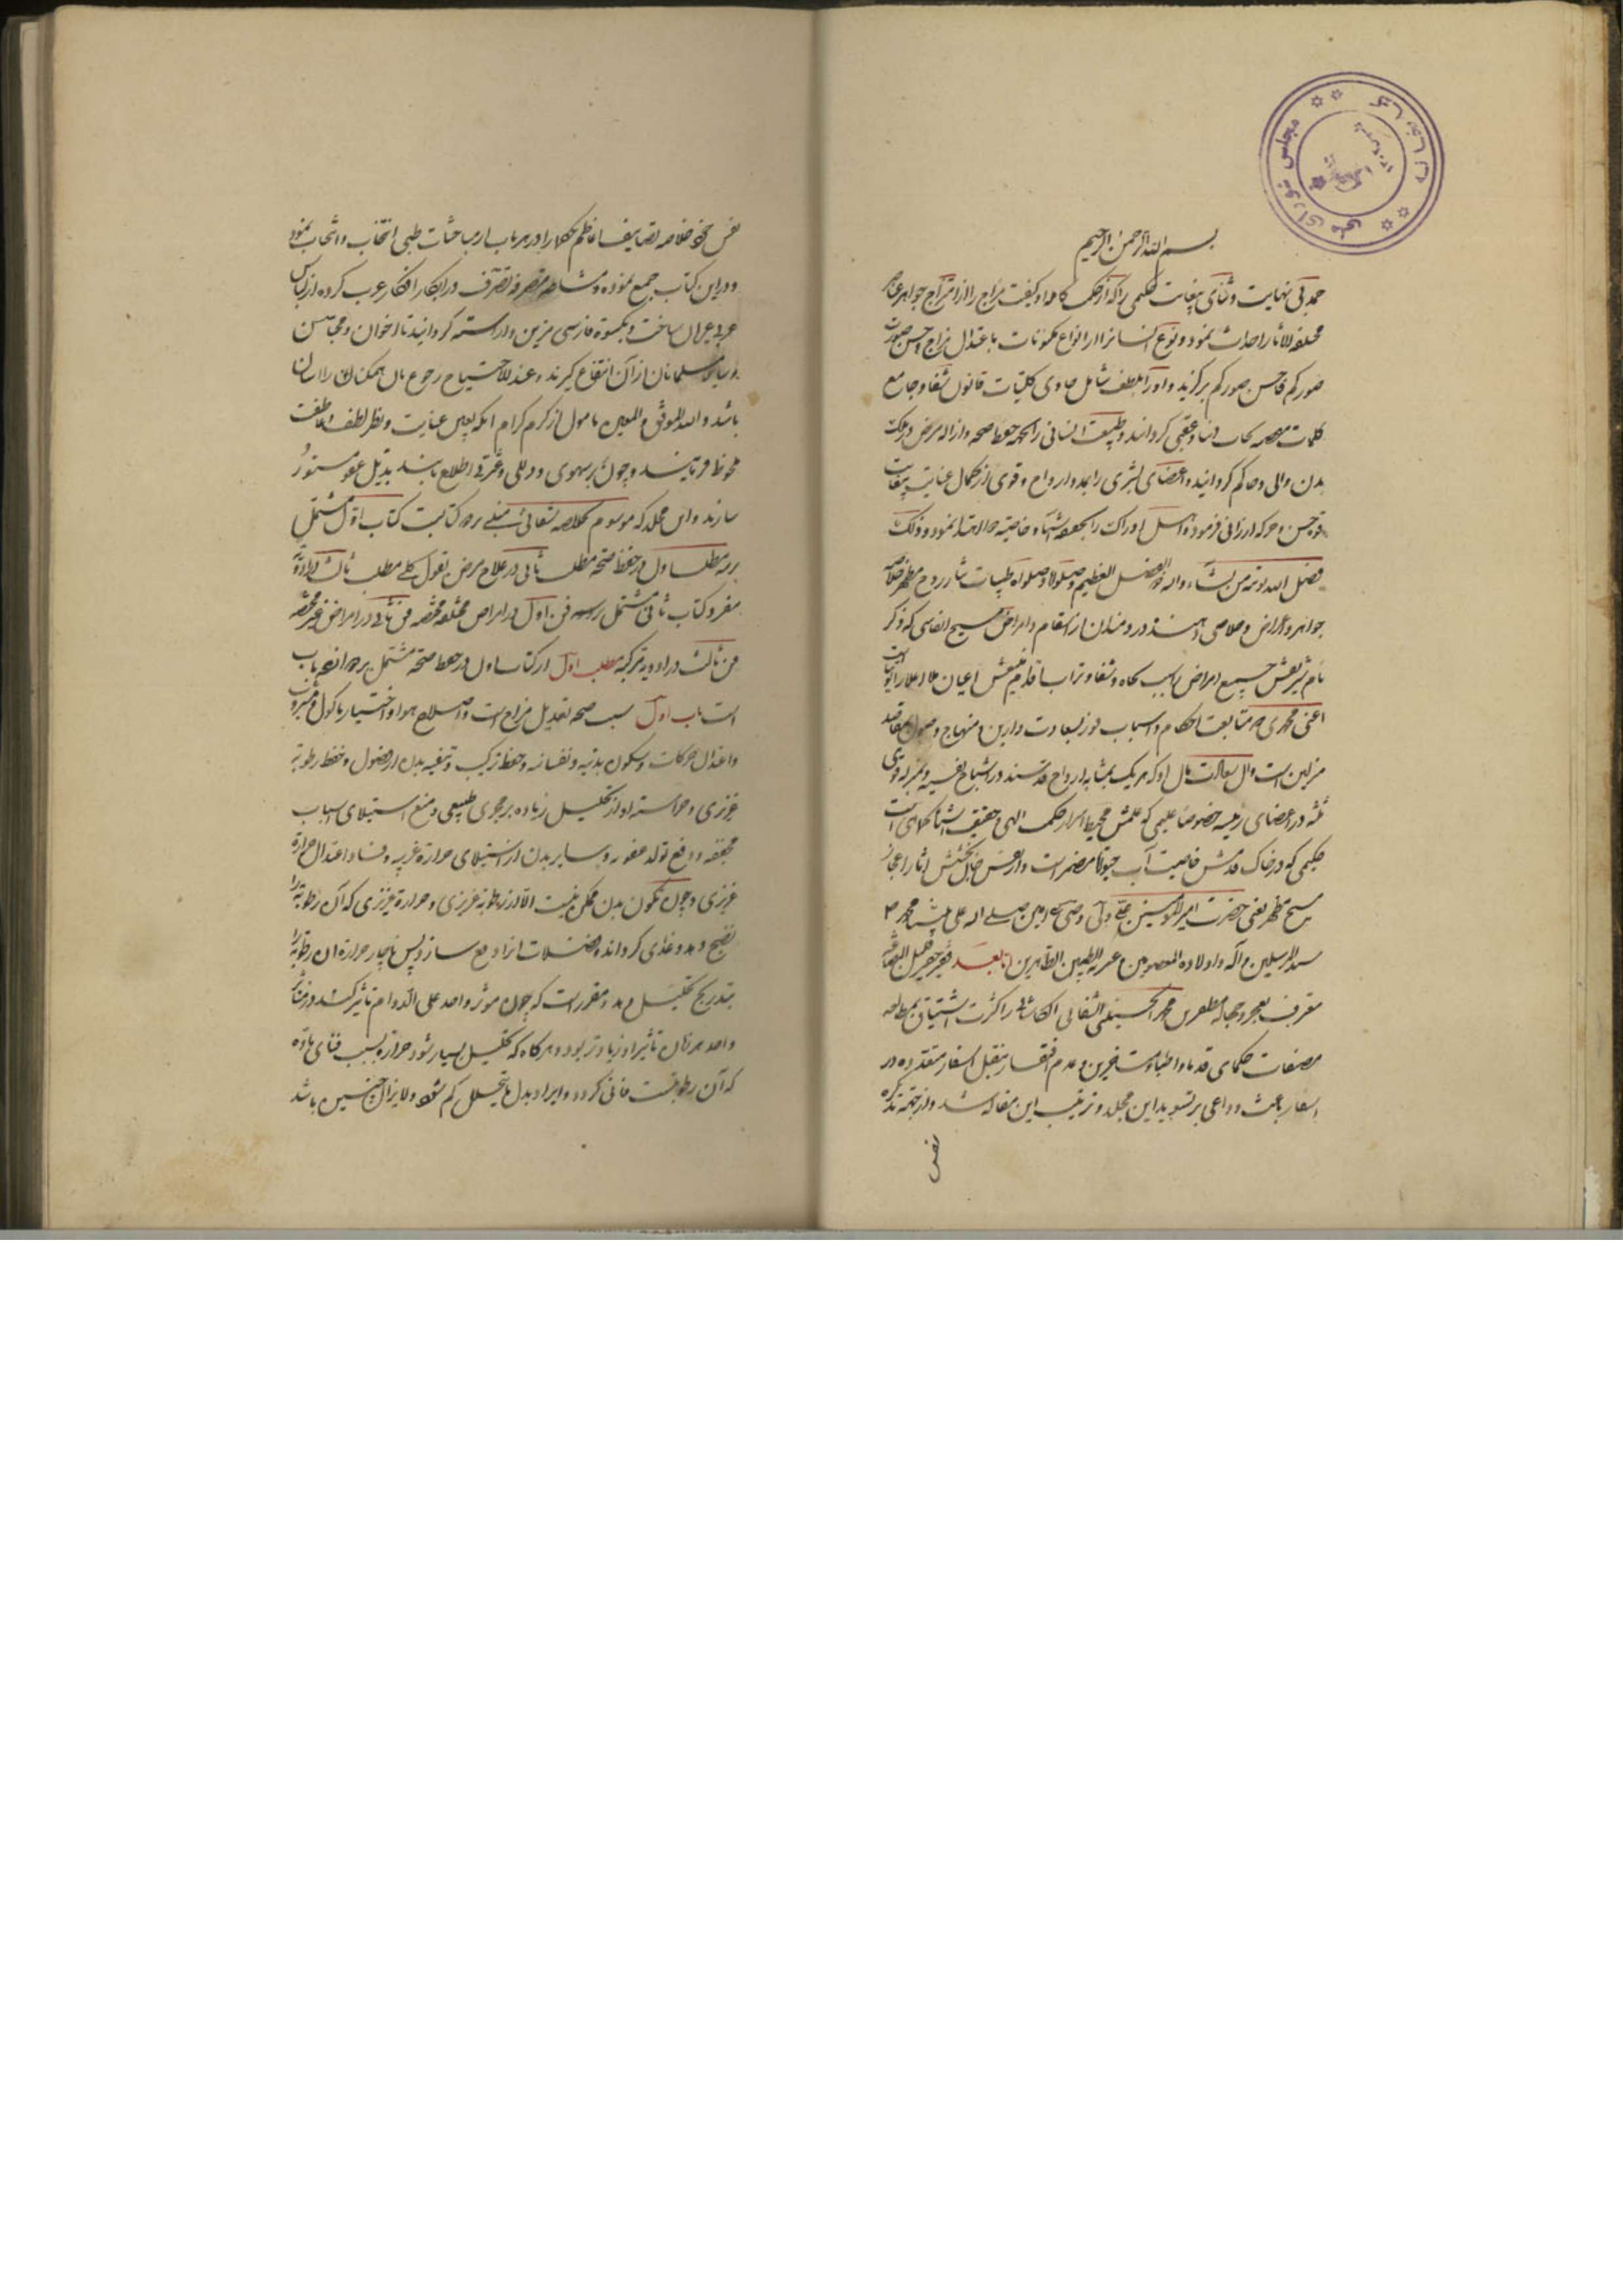 بسم الله الرحمن الرحیم
حمد بی نهایت و ثنای بیغایت حکیمی را که از حکمت کامله او کیفیت مزاج را از امتزاج جواهر عناصر
مختلفة الآثار احداث نمود و نوع انسانرا از انواع مکونات باعتدال مزاج و حسن صورت
صورکم فاحسن صورکم برگزید و او را بلطف شامل حاوی کلیات قانون شفا و جامع
کلمات نجات دنیا و عقبی گردانید و طبیعت انسانی را بجهة حفظ صحه و ازاله مرض در مملکت
بدن والی و حاکم گردانید و اعضای بشری را بمدد ارواح و قوی از کمال عنایت بیغایت
قوه حس و حرکه ارزانی فرموده اهل ادراک را بمعرفة اشیاء و خاصیة هر اهتدا نمود و ذلک
فضل الله یوتیه من یشاء والله ذو الفضل العظیم و صلوة و صلواة طیبات نثار روح مطهر خلاصه
جواهر و اعراض و خلاصی دهنده دردمندان از اسقام و امراض مسیح انفاسی که ذکر
نام شریفش جمیع امراض را سبب نجاة و شفا و تراب اقدام منیفش اعیان ملا اعلا را توتیاست
اعنی محمدی که متابعت احکام و اسباب فوز بسعادت دارین و منهاج وصول بمقاصد
منزلین است و آل سعادت مآل او که هر یک بمثابه ارواح قدسند در اشباح نفسیه و بمنزله قوای
ثلثه در اعضای رئیسه خصوصا علیمی که علمش محیط اسرار حکمت الهی و حقیقت اشیا کماهی است
حکیمی که در خاک قدمش خاصیت آب حیوة مضمر است و از نفس جان بخشش آثار اعجاز
مسیح مظهر یعنی حضرت امیرالمؤمنین علی ولی و وصی رسول امین صلی الله علی نبینا محمد
سید المرسلین و آله و اولاده المعصومین و عترته الطیبین الطاهرین اما بعد فقیر حقیر قلیل البضاعه
معترف بعجز و جهاله مظفر بن محمد الحسینی الشفائی الکاشانی را کثرت اشتیاق بمطالعه
مصنفات حکمای قدما و اطباء متاخرین و عدم اقتدار بنقل اسفار متعدده در
اسفار باعث و داعی بر تسوید این مجلد و ترتیب این مقاله شد و از جهة تذکره
نفس
نفس خود خلاصه تصانیف اعاظم حکما را در هر باب از مباحثات طبی انتخاب نمود
و در این کتاب جمع نموده و مشاطه متصرفه تصرف در ابکار افکار عرب کرده از لباس
عربی عریان ساخت و بکسوة فارسی مزین و آراسته گردانید تا اخوان و محبان من
و سایر مسلمانان از آن انتفاع گیرند و عند الاحتیاج رجوع بآن همکنان را آسان
باشد والله الموفق والمعین مامول از کرم کرام آنکه بعین عنایت و نظر لطف و عاطفت
ملحوظ فرمایند و چون بر سهوی و زللی و عثرتی اطلاع یابند بذیل عفو مستور
سازند و این مجلد که موسوم بخلاصه شفائی است مبنی بر دو کتابست کتاب اول مشتمل
بر سه مطلب اول در حفظ صحه مطلب ثانی در علاج مرض بقول کلی مطلب ثالث در ادویه
مفرد و کتاب ثانی مشتمل بر سه فن اول در امراض مختلفه مختصه فن ثانی در امراض غیر مختصه
فن ثالث در ادویه مرکبه مطلب اول از کتاب اول در حفظ صحه مشتمل بر دوازده باب
است باب اول سبب صحه تعدیل مزاج است و اصلاح هوا و اختیار ماکول و مشروب
و اعتدال حرکات و سکون بدنیه و نفسانیه و حفظ ترکیب و تنقیه بدن از فضول و حفظ رطوبة
غریزی و حراست او از تحلیل زیاده بر مجری طبیعی و منع استیلای اسباب
مجففه و دفع تولد عفونه و سایر بدن از استیلای حرارة غریبه و فساد اعتدال حرارة
غریزی و چون تکون بدن ممکن نیست الا از رطوبة غریزی و حرارة غریزی که آن رطوبة را
نضج دهد و غذی گرداند و فضلات آنرا دفع سازد پس ناچار حرارة آن رطوبة را
بتدریج تحلیل دهد و مقرر است که چون موثر واحد علی الدوام تاثیر کند در متاثر
واحد هر زمان تاثیر او زیادتر بود و هرگاه که تحلیل بسیار شود حرارة بسبب فنای ماده
که آن رطوبتست فانی گردد و ایراد بدل ما یتحلل کم شود و لا یزال چنین باشد
مجلس شورای ملی